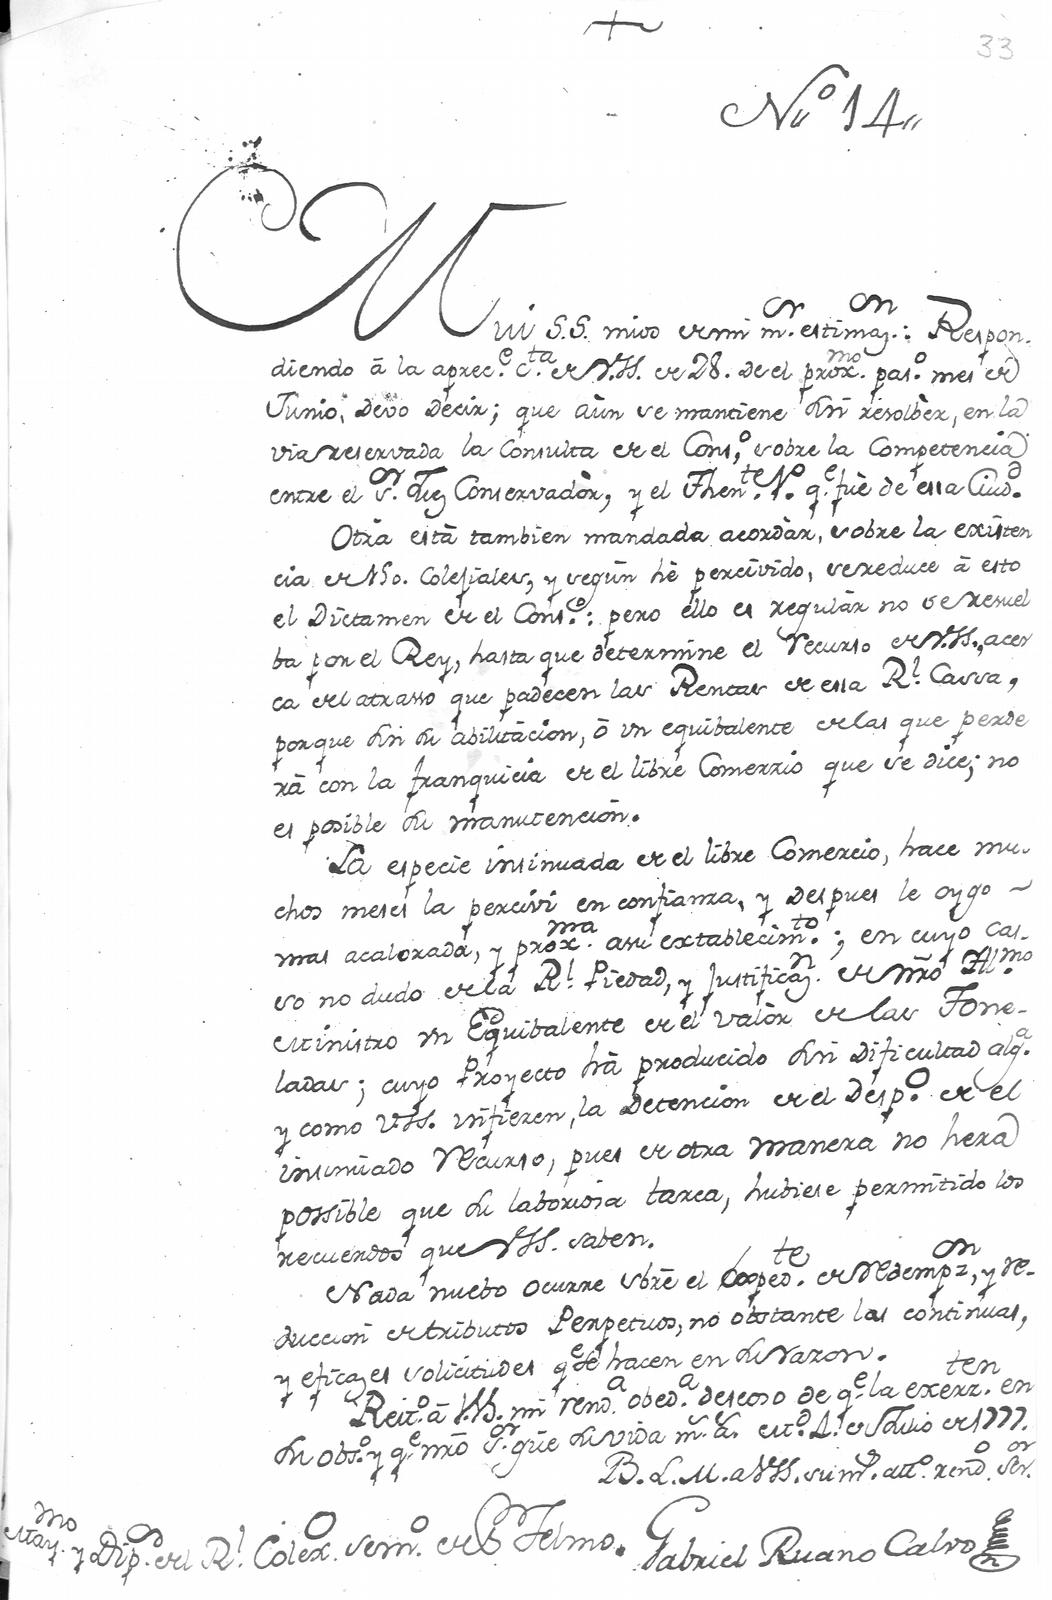 +
33
Nº 14,,
Mui S.S. mios de mi mr. estimazon.: Respon-
diendo â la aprece. cta. de V.SS. de 28. de el proxmo. paso. mes de
Junio, devo decir; que aùn se mantiene sin resolbèr, en la
via reservada la Consulta de el Conso. sobre la Competencia
entre el Sr. Juez Conservadòr, y el Thente. Vo. qe. fuè de essa Ciudd.
Otra està tambien mandada acordàr, sobre la existen
cia de 150. Colesiales, y segùn hè percivido, se reduce â esto
el Dictamen de el Conso.: pero ello es regulàr no se resuel
ba por el Rey, hasta que determine el recurso de V.SS., acer
ca del atrasso que padecen las Rentas de essa Rl. Cassa,
porque sin su abilitacion, ô un equibalente de las que perde
rà con la franquicia de el libre Comerzio que se dice; no
es posible su manutencion.
La especie insinuada de el libre Comercio, hace mu-
chos meses la percivi en confianza, y despues le oygo
mas acalorada, y proxma. a su extablecimto.; en cuyo cas-
so no dudo de la Rl. Piedad, y Justificazn. de nro Illmo
Ministro un Equibalente de el valòr de las Tone-
ladas; cuyo Proyecto hà producido sin dificultad alga.
y como VSS. infieren, la Detencion de el Despo. de el
insinuado recurso, pues de otra manera no hera
possible que su laboriosa tarea, hubiese permitido los
recuerdos que VSS. saben.
Nada nuebo ocurre sbrè el expedte. de redempzon, y re-
duccion de tributos Perpetuos, no obstante las continuas,
y eficazes solicitudes qe. se hacen en su razon.
Reito. â V.SS. mi renda. obeda. deseoso de qe. la exerzten. en
su obso. y qe. nrô Sr. gùe su vida ms. as. Mo. 4. de Julio de 1777.
B. L. M. a VSS. su mr. atto. rendo. Sor.
Gabriel Ruano Calvo
Maymo. y Dipo. del Rl. Colexo. Semo. de Sn Telmo.